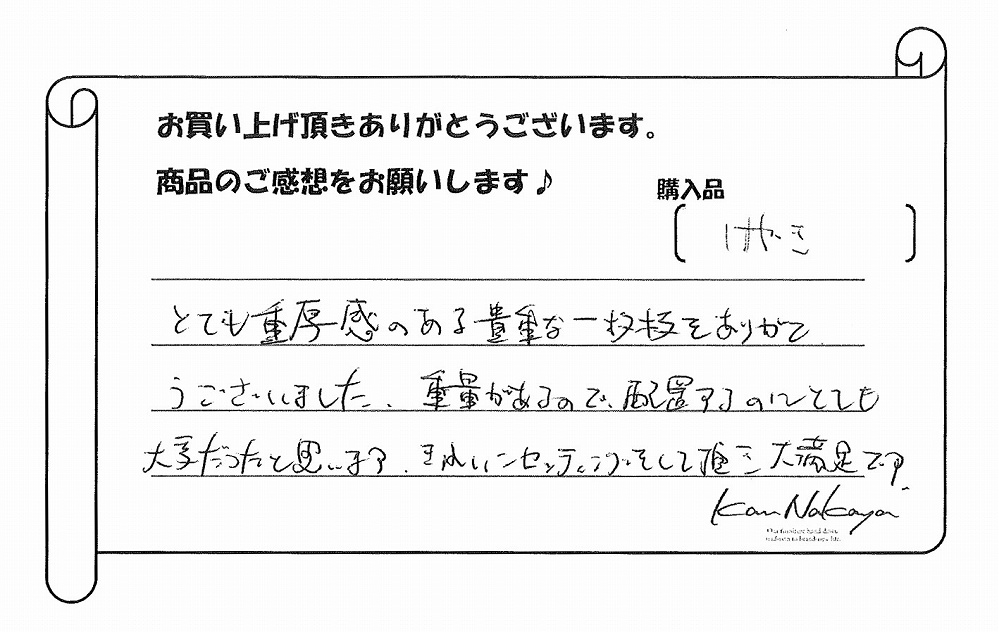 お買い上げ頂きありがとうございます。
商品のご感想をお願いします♪
購入品
けやき
とても重厚感のある貴重な一枚板をありがと
うございました。重量があるので、配置するのにとても
大変だったと思います。きれいにセッティングそして頂き大満足です。
Kan Nakaya
Our furniture hand down